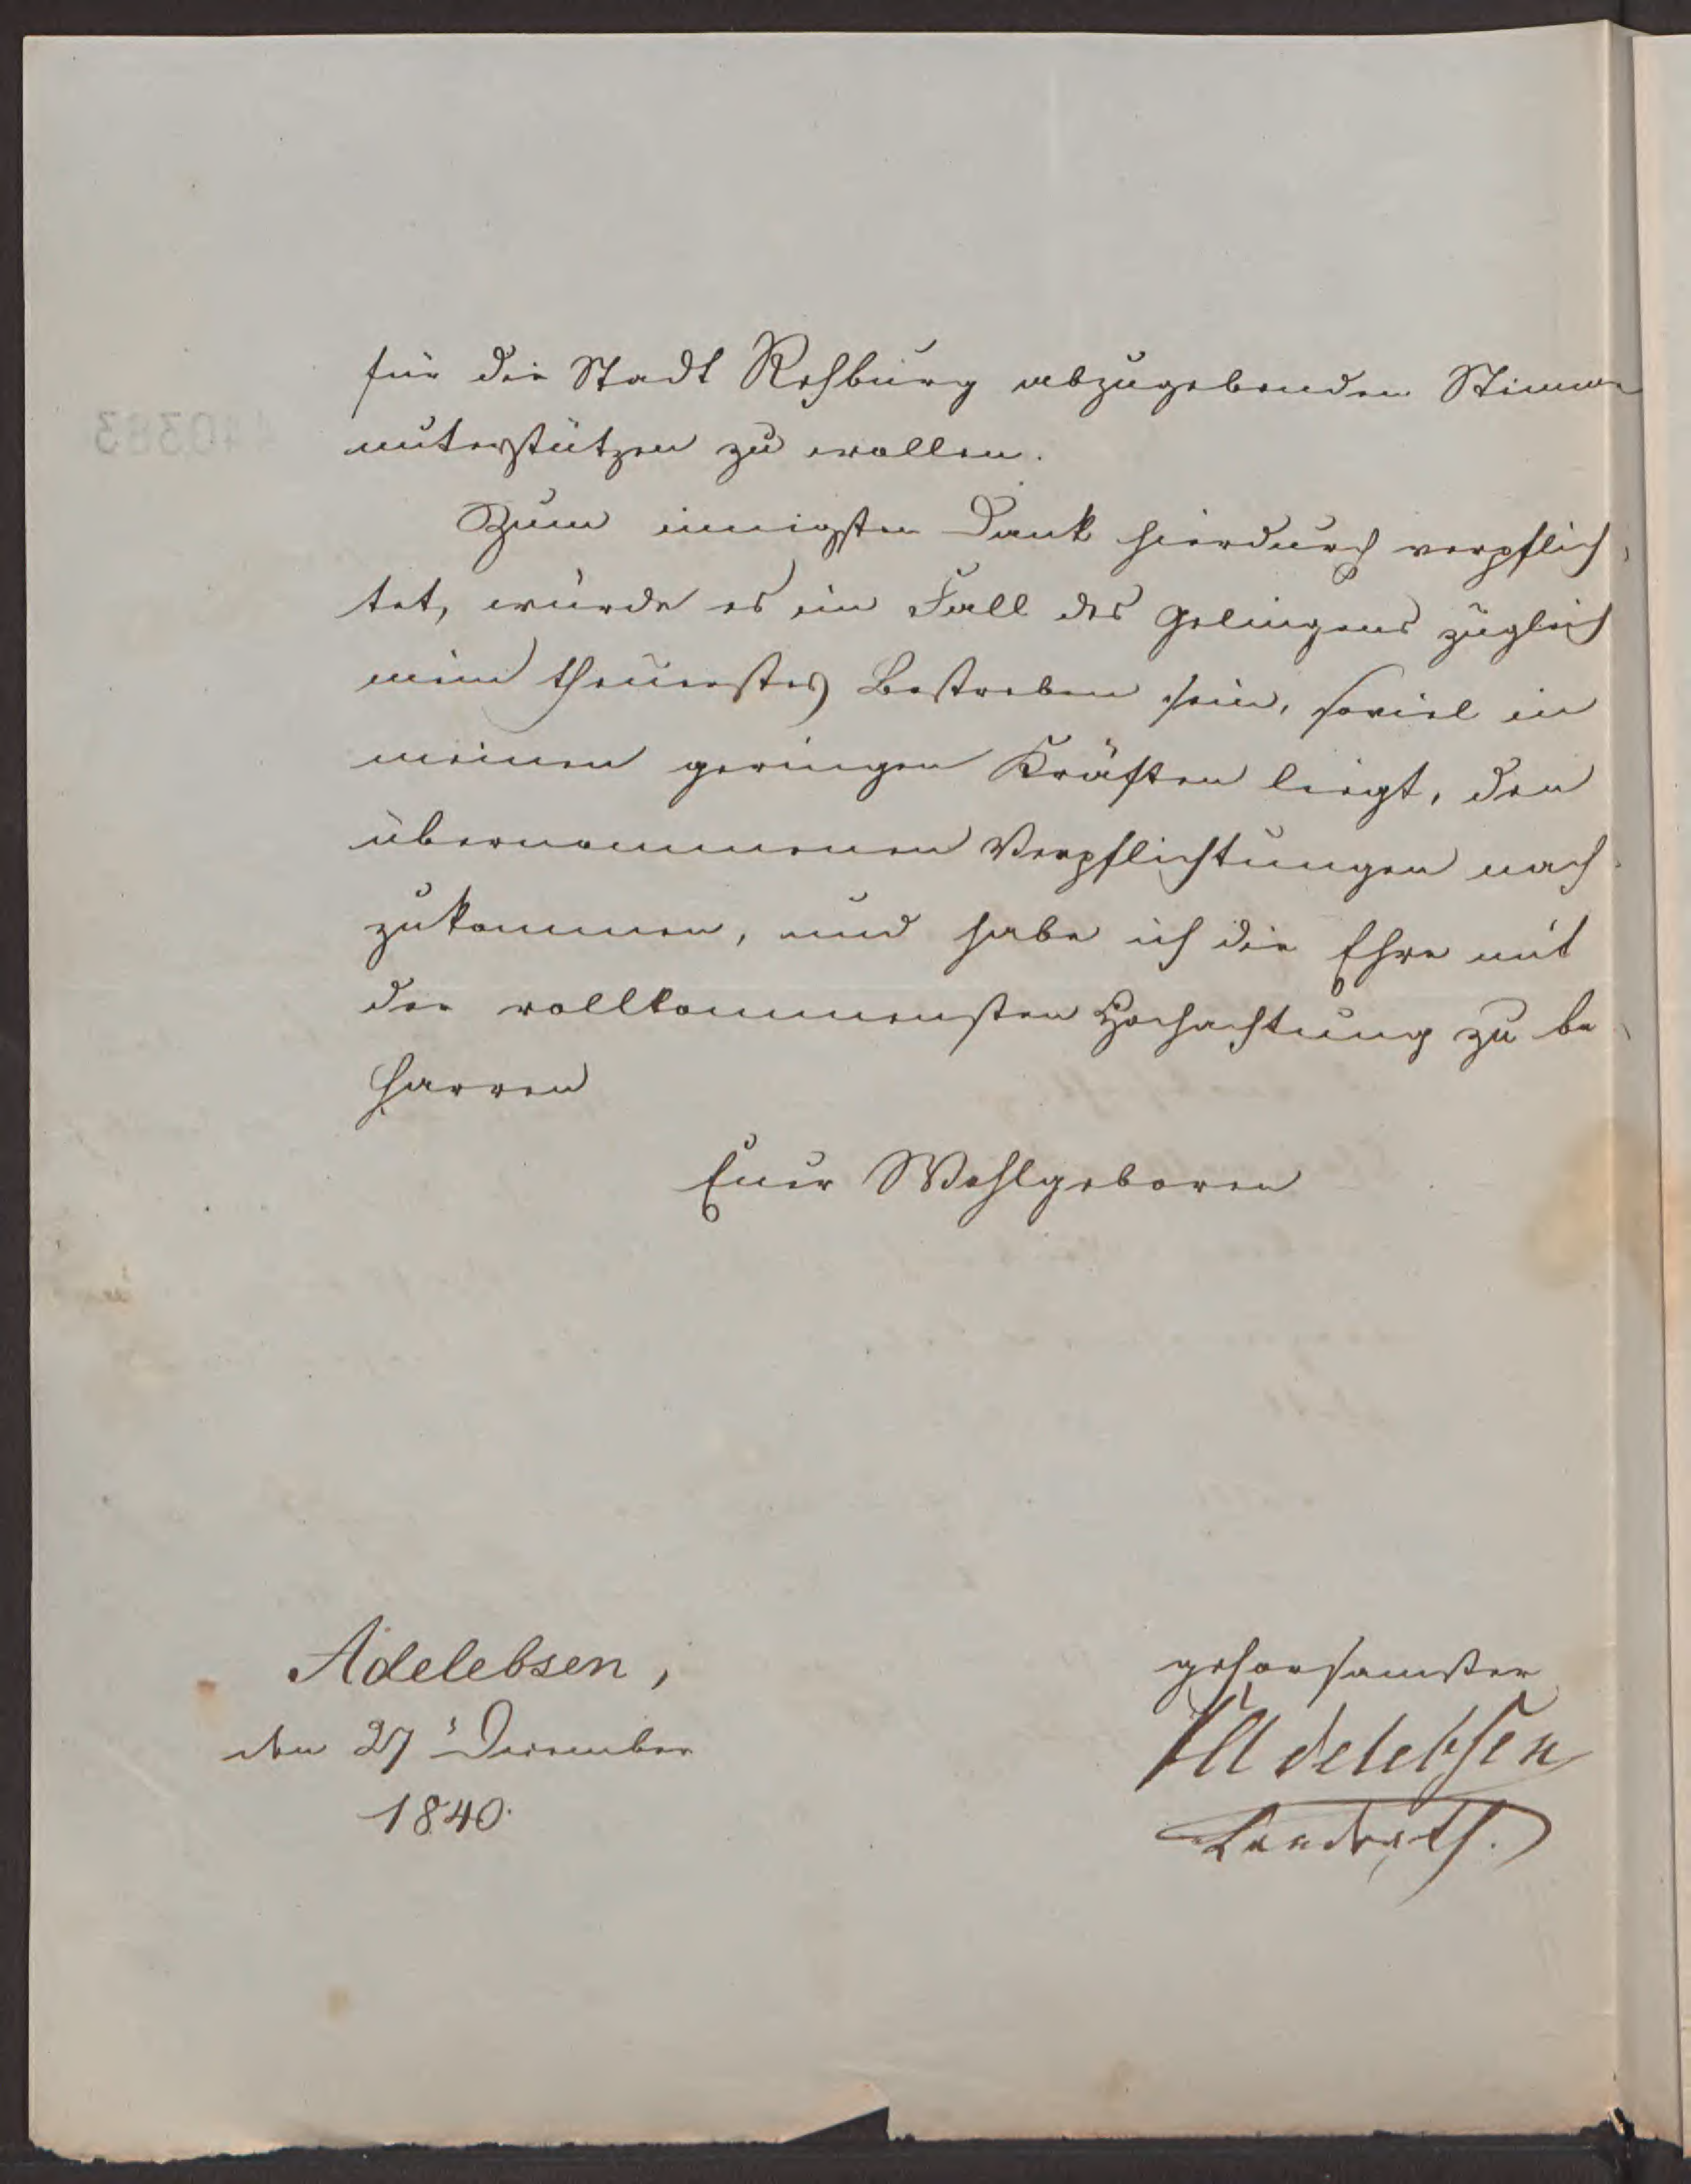 für die Stadt Rehburg abzugebenden Stimme
unterstützen zu wollen.
Zum innigsten Dank hierdurch verpflich¬
tet, würde es im Fall des Gelingens zugleich
mein theuerstes Bestreben sein, soviel in
meinen geringen Kräften liegt, den
übernommenen Verpflichtungen nach¬
zukommen, und habe ich die Ehre mit
der vollkommensten Hochachtung zu be¬
harren
Euer Wohlgeboren
Adelebsen,
den 27t December
1840.
gehorsamster
Adelebsen
Landrath.